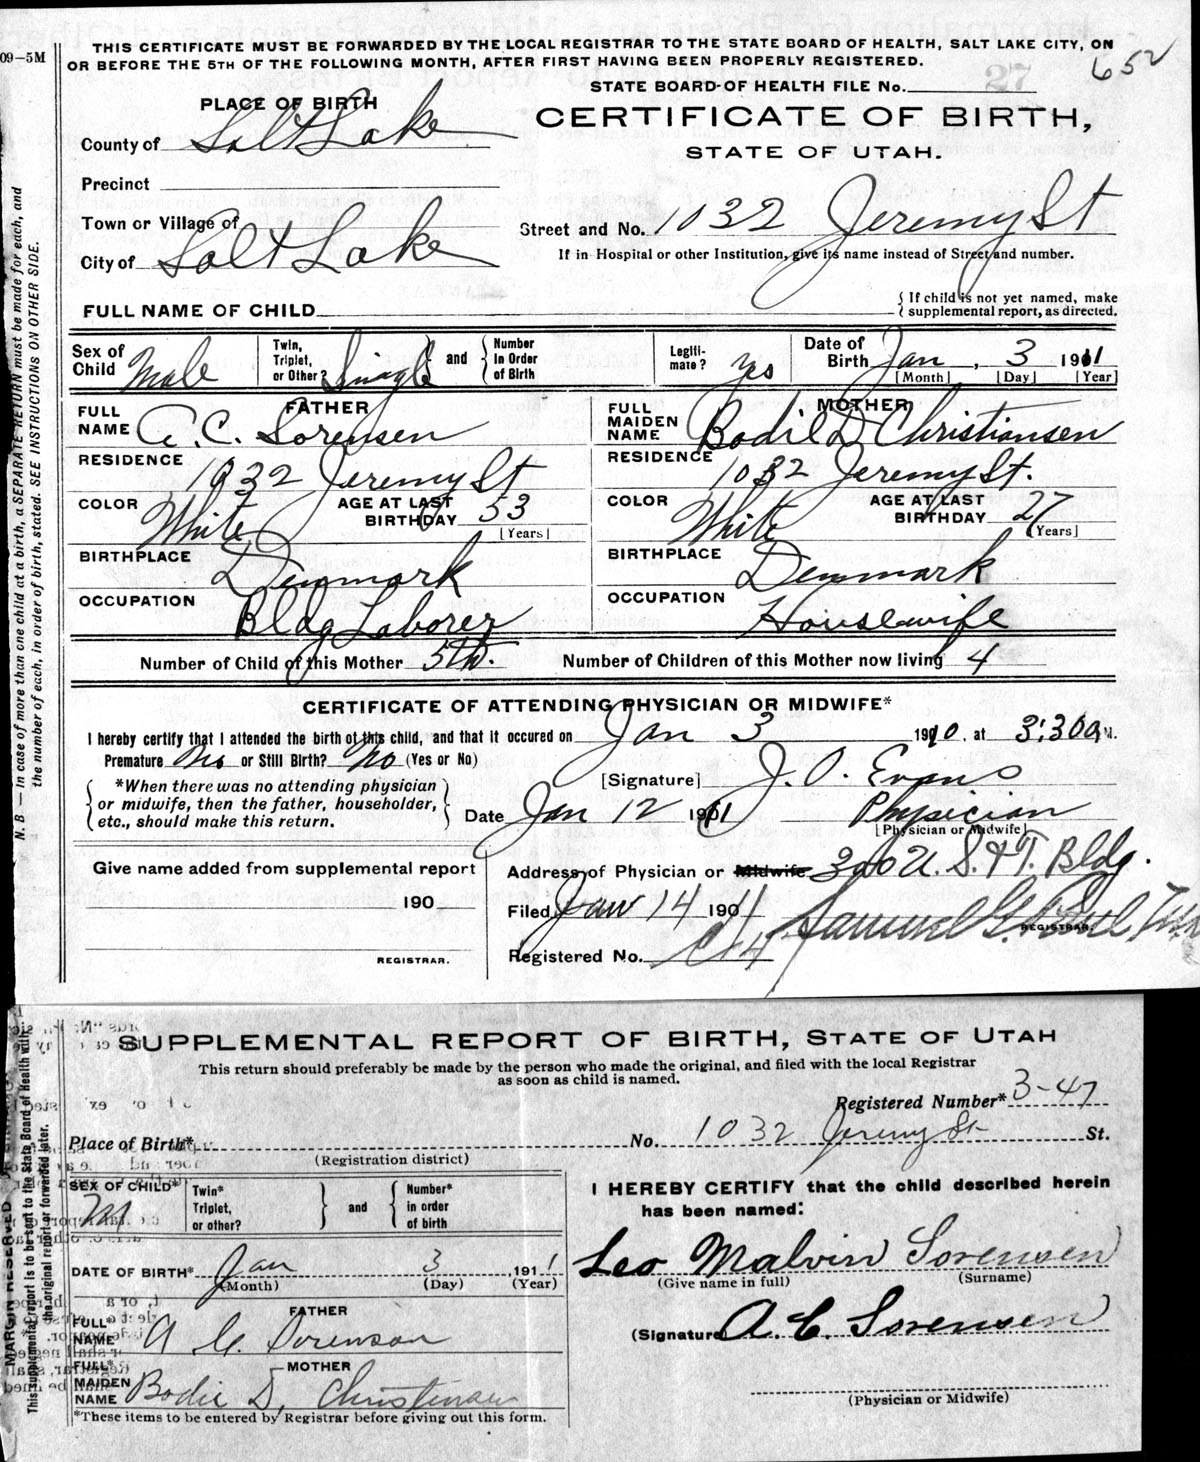 09—5M
THIS CERTIFICATE MUST BE FORWARDED BY THE LOCAL REGISTRAR TO THE STATE BOARD OF HEALTH, SALT LAKE CITY, ON
OR BEFORE THE 5TH OF THE FOLLOWING MONTH, AFTER FIRST HAVING BEEN PROPERLY REGISTERED.
652
STATE BOARD OF HEALTH FILE No. 27
PLACE OF BIRTH
CERTIFICATE OF BIRTH,
STATE OF UTAH.
County of Salt Lake
Precinct
Town or Village of
Street and No. 1032 Jeremy St
City of Salt Lake
If in Hospital or other Institution, give its name instead of Street and number.
FULL NAME OF CHILD
{ If child is not yet named, make
supplemental report, as directed.
Sex of Child Male
Twin, Triplet, or Other? Single
and
Number in Order of Birth
Legiti-mate? Yes
Date of Birth Jan, 3 1911
[Month] [Day] [Year]
FATHER
FULL NAME A. C. Sorensen
RESIDENCE 1032 Jeremy St
COLOR White
AGE AT LAST BIRTHDAY 33
[Years]
BIRTHPLACE Denmark
OCCUPATION Bldg Laborer
MOTHER
FULL MAIDEN NAME Bodil D Christiansen
RESIDENCE 1032 Jeremy St.
COLOR White
AGE AT LAST BIRTHDAY 27
(Years]
BIRTHPLACE Denmark
OCCUPATION Housewife
Number of Child of this Mother 5th.
Number of Children of this Mother now living 4
CERTIFICATE OF ATTENDING PHYSICIAN OR MIDWIFE*
I hereby certify that I attended the birth of this child, and that it occured on Jan 3 1910, at 3:30 a M.
Premature No or Still Birth? No (Yes or No)
*When there was no attending physician
or midwife, then the father, householder,
etc., should make this return.
[Signature] J. O. Evans
Date Jan 12 1911
Physician
[Physician or Midwife]
Give name added from supplemental report
190
REGISTRAR.
Address of Physician or Midwife 300 U. S. & T. Bldg.
Filed Jan 14 1911
Samuel G. Paul
REGISTRAR.
Registered No.
N. B.— In case of more than one child at a birth, a SEPARATE RETURN must be made for each, and
the number of each, in order of birth, stated. SEE INSTRUCTIONS ON OTHER SIDE.
SUPPLEMENTAL REPORT OF BIRTH, STATE OF UTAH
This return should preferably be made by the person who made the original, and filed with the local Registrar
as soon as child is named.
Registered Number* 3-47
Place of Birth*
(Registration district)
No. 1032 Jeremy St St.
SEX OF CHILD* M
Twin* Triplet, or other?
and
Number* in order of birth
DATE OF BIRTH* Jan 3 1911
(Month) (Day) (Year)
FATHER
FULL* NAME A C. Sorenson
MOTHER
FULL* MAIDEN NAME Bodil D. Christensen
*These items to be entered by Registrar before giving out this form.
I HEREBY CERTIFY that the child described herein
has been named:
Leo Malvin Sorensen
(Give name in full) (Surname)
(Signature A. C. Sorensen
(Physician or Midwife)
MARGIN RESERVED
This supplemental report is to be sent to the State Board of Health with
the original report or forwarded later.